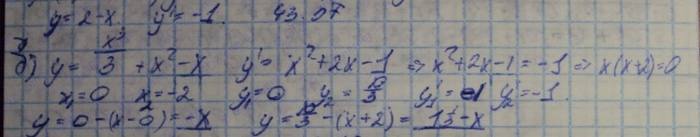 y = 2-x. y' = -1. 43.07
б) y = x³/3 + x² - x y' = x² + 2x - 1 ⇒ x² + 2x - 1 = -1 ⇒ x(x+2) = 0
x₁ = 0 x₂ = -2 y₁ = 0 y₂ = 10/3 y₁' = -1 y₂' = -1.
y = 0 - (x-0) = -x y = 10/3 - (x+2) =